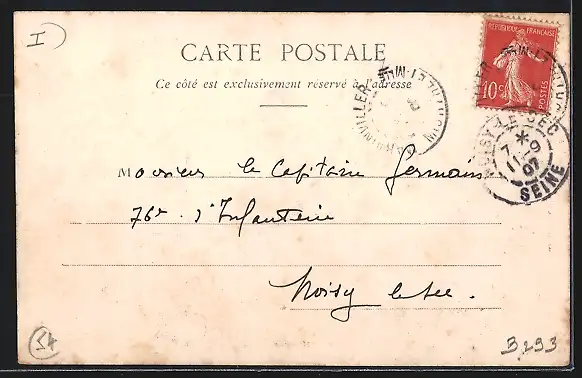 I)
CARTE POSTALE
Ce côté est exclusivement réservé à l'adresse
RÉPUBLIQUE FRANÇAISE
10c
POSTES
NOISY-LE-SEC
7 *
11-9
07
SEINE
Monsieur le Capitaine Germain
76e d'Infanterie
Noisy le Sec.
34
B,293